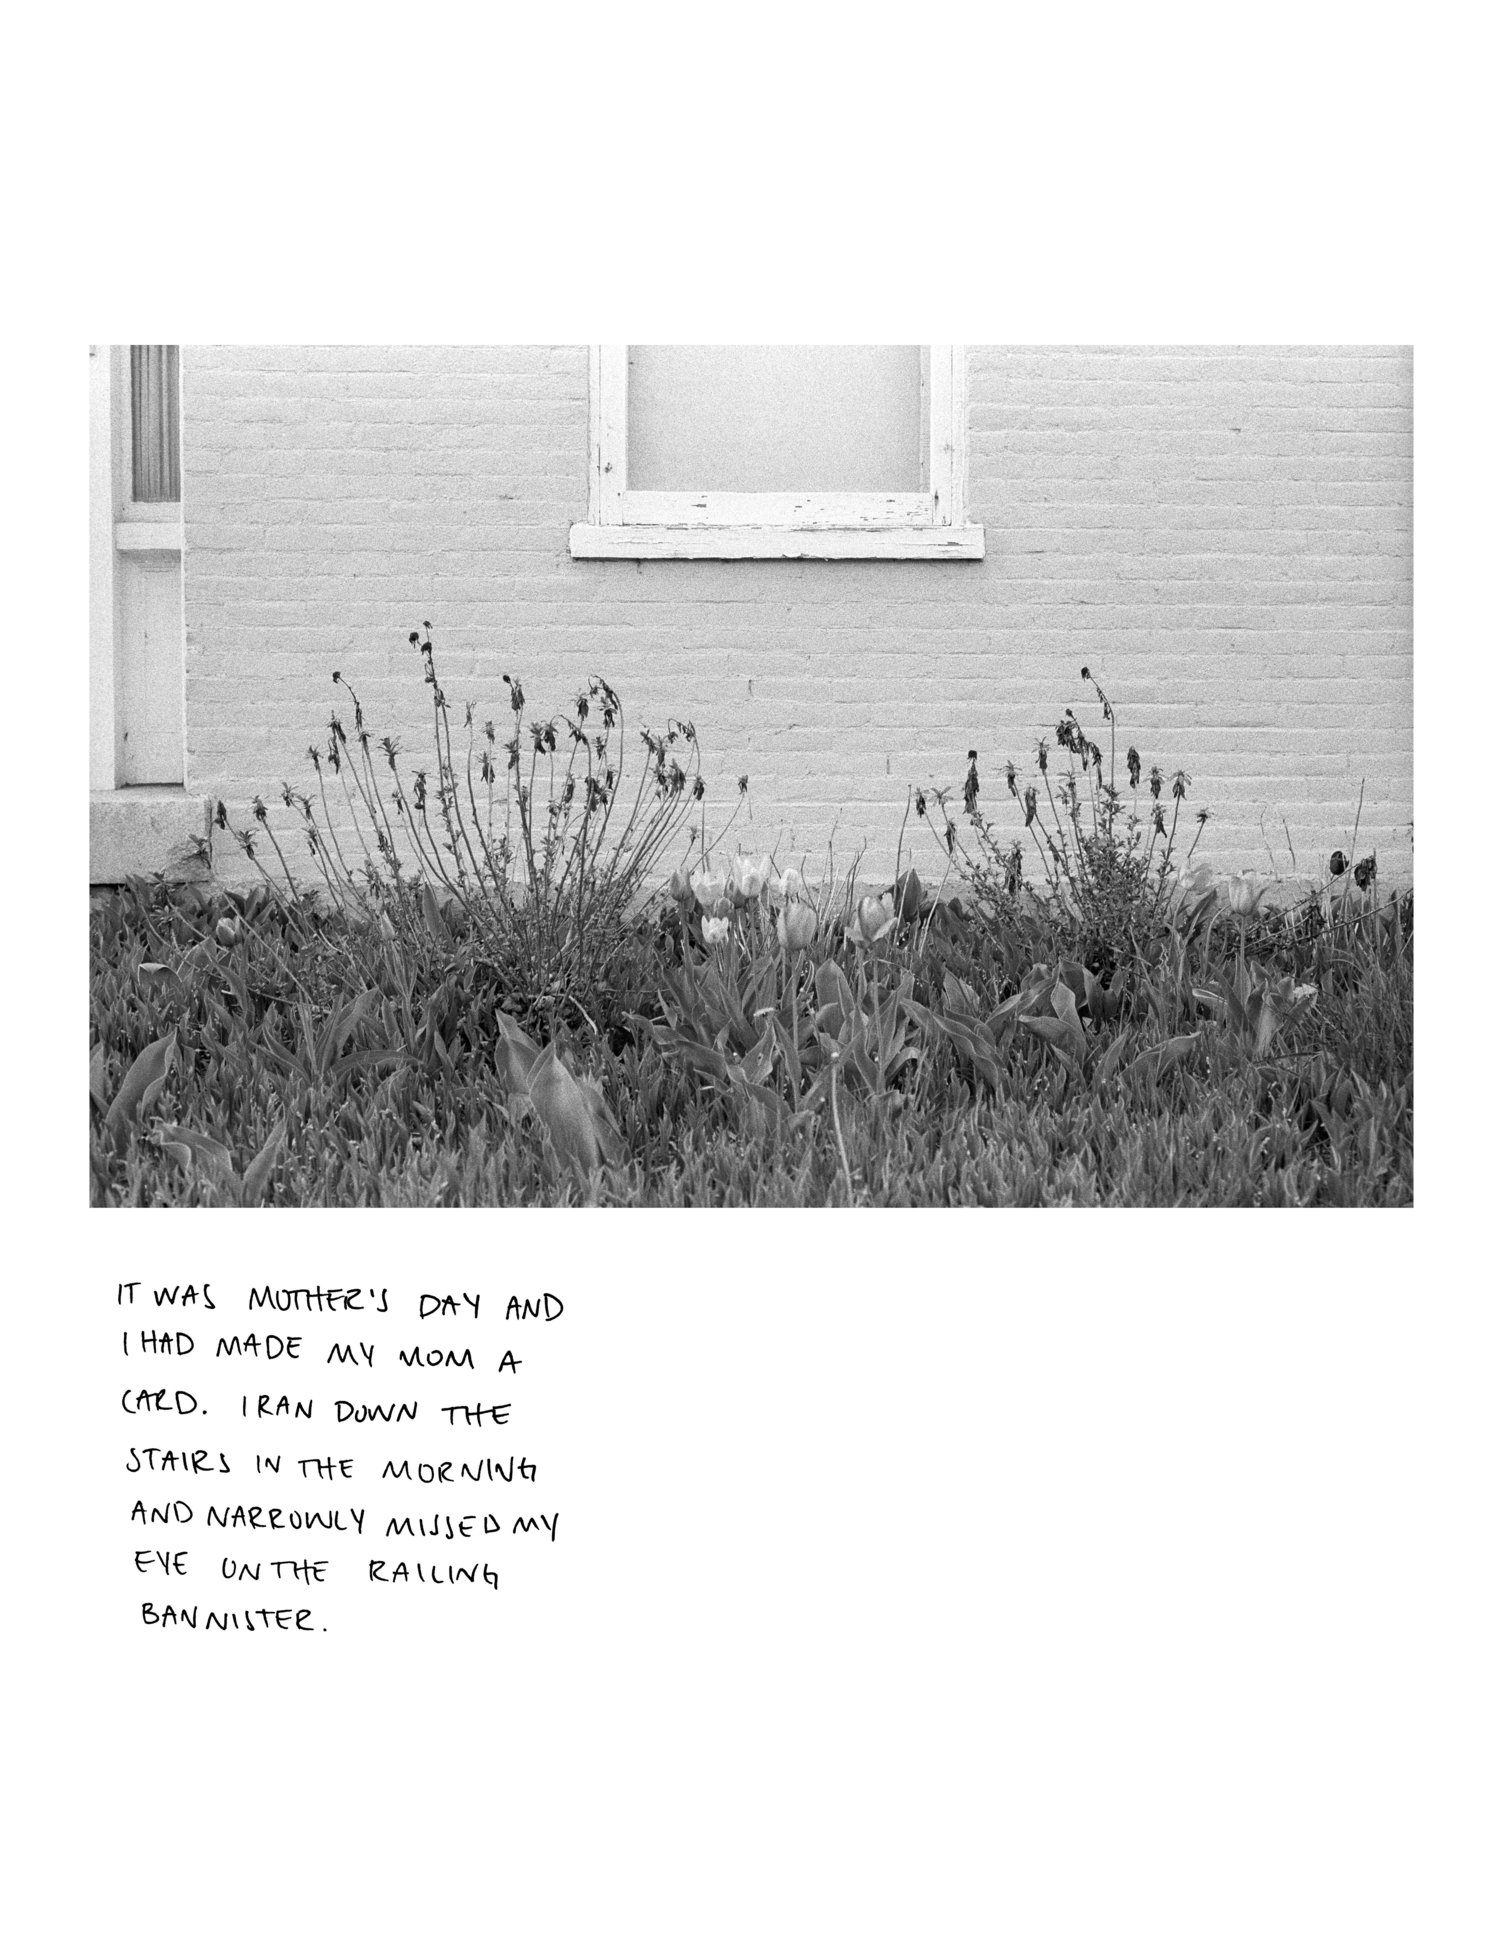 IT WAS MOTHER'S DAY AND
I HAD MADE MY MOM A
CARD. I RAN DOWN THE
STAIRS IN THE MORNING
AND NARROWLY MISSED MY
EYE ON THE RAILING
BANNISTER.